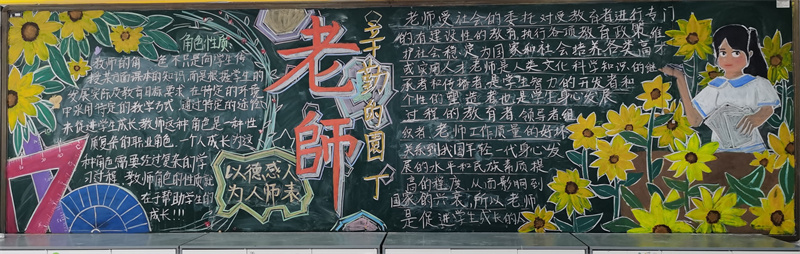 角色性质
教师的角色不只是向学生传
授某方面课本的知识，而是根据学生的
发展实际及教育目标要求，在特定的环境
中采用特定的教学方式，通过特定的途径
来促进学生成长，教师这种角色是一种性
质复杂的职业角色。一个人成长为这
种角色需要经过复杂的学
习过程，教师角色的性质就
在于帮助学生的
成长!!!
老師
辛勤的园丁
以德感人
为人师表
老师受社会的委托对受教育者进行专门
的有建设性的教育，执行各项教育政策，维
护社会稳定，为国家和社会培养各类高才
或实用人才，老师是人类文化科学知识的继
承者和传播者，是学生智力的开发者和
个性的塑造者，也是学生身心发展
过程的教育者、领导者、组
织者。老师工作质量的好坏
关系到我国年轻一代身心发
展的水平和民族素质提
高的程度，从而影响到
国家的兴衰，所以老师
是促进学生成长的人